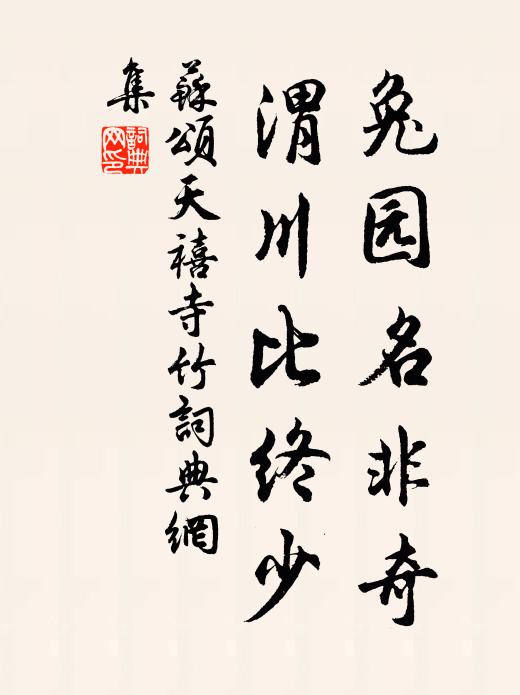 兔园名非奇
渭川比终少
蘇頌天禧寺竹詞典網
集
詞典
网印